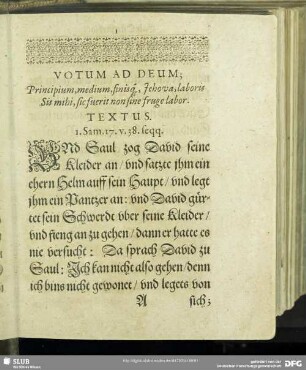 VOTUM AD DEUM;
Principium, medium, finisq́, Jehova, laboris
Sis mihi, sic fuerit non sine fruge labor.
TEXTUS.
1. Sam. 17. v. 38. seqq.
VNd Saul zog David seine
Kleider an / vnd satzte jhm ein
ehern Helm auff sein Haupt / vnd legt
jhm ein Pantzer an: vnd David gür-
tet sein Schwerdt vber seine Kleider /
vnd fieng an zu gehen / dann er hatte es
nie versucht: Da sprach David zu
Saul: Ich kan nicht also gehen / denn
ich bins nicht gewonet / vnd legets von
A sich;
SLUB
DFG